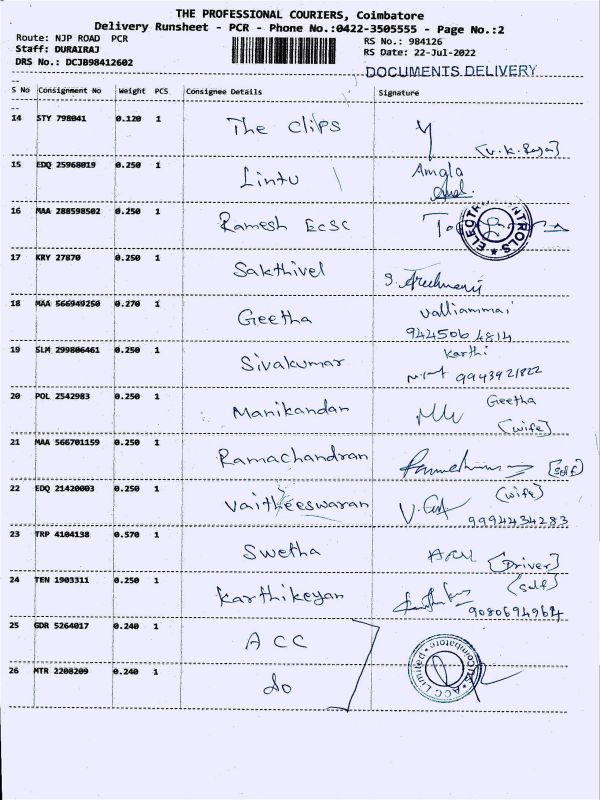 THE PROFESSIONAL COURIERS, Coimbatore
Delivery Runsheet - PCR - Phone No.:0422-3505555 - Page No.:2
Route: NJP ROAD PCR
RS No.: 984126
Staff: DURAIRAJ
RS Date: 22-Jul-2022
DRS No.: DCJB98412602
DOCUMENTS DELIVERY
S No Consignment No Weight PCS Consignee Details Signature
14 STY 798041 0.120 1 The Clips
15 EDQ 25968019 0.250 1 Lintu Amgla
16 MAA 288598502 0.250 1 Ramesh ECSC
17 KRY 27870 0.250 1 Sakthivel
18 MAA 566949250 0.270 1 Geetha Valliammai
9445064814
19 SLM 299806461 0.250 1 Sivakumar Karthi
9943921822
20 POL 2542983 0.250 1 Manikandan Geetha
[wife]
21 MAA 566701159 0.250 1 Ramachandran [self]
22 EDQ 21420003 0.250 1 Vaitheeswaran [wife]
9994434283
23 TRP 4104138 0.570 1 Swetha [Driver]
24 TEN 1903311 0.250 1 Karthikeyan [self]
9080694964
25 GDR 5264017 0.240 1 ACC
ACC Limited * Coimbatore
26 MTR 2208209 0.240 1 do